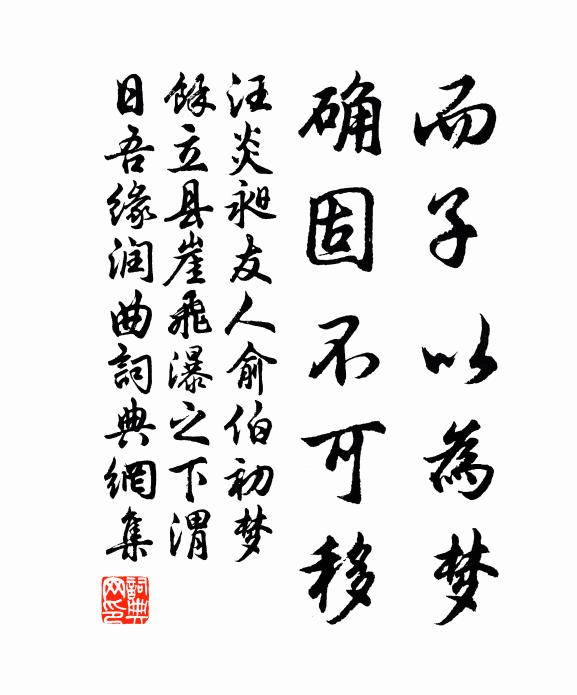 而子以為梦
确固不可移
汪炎昶友人俞伯初梦
餘立县崖飛瀑之下渭
日吾缘润曲詞典網集
詞典網印